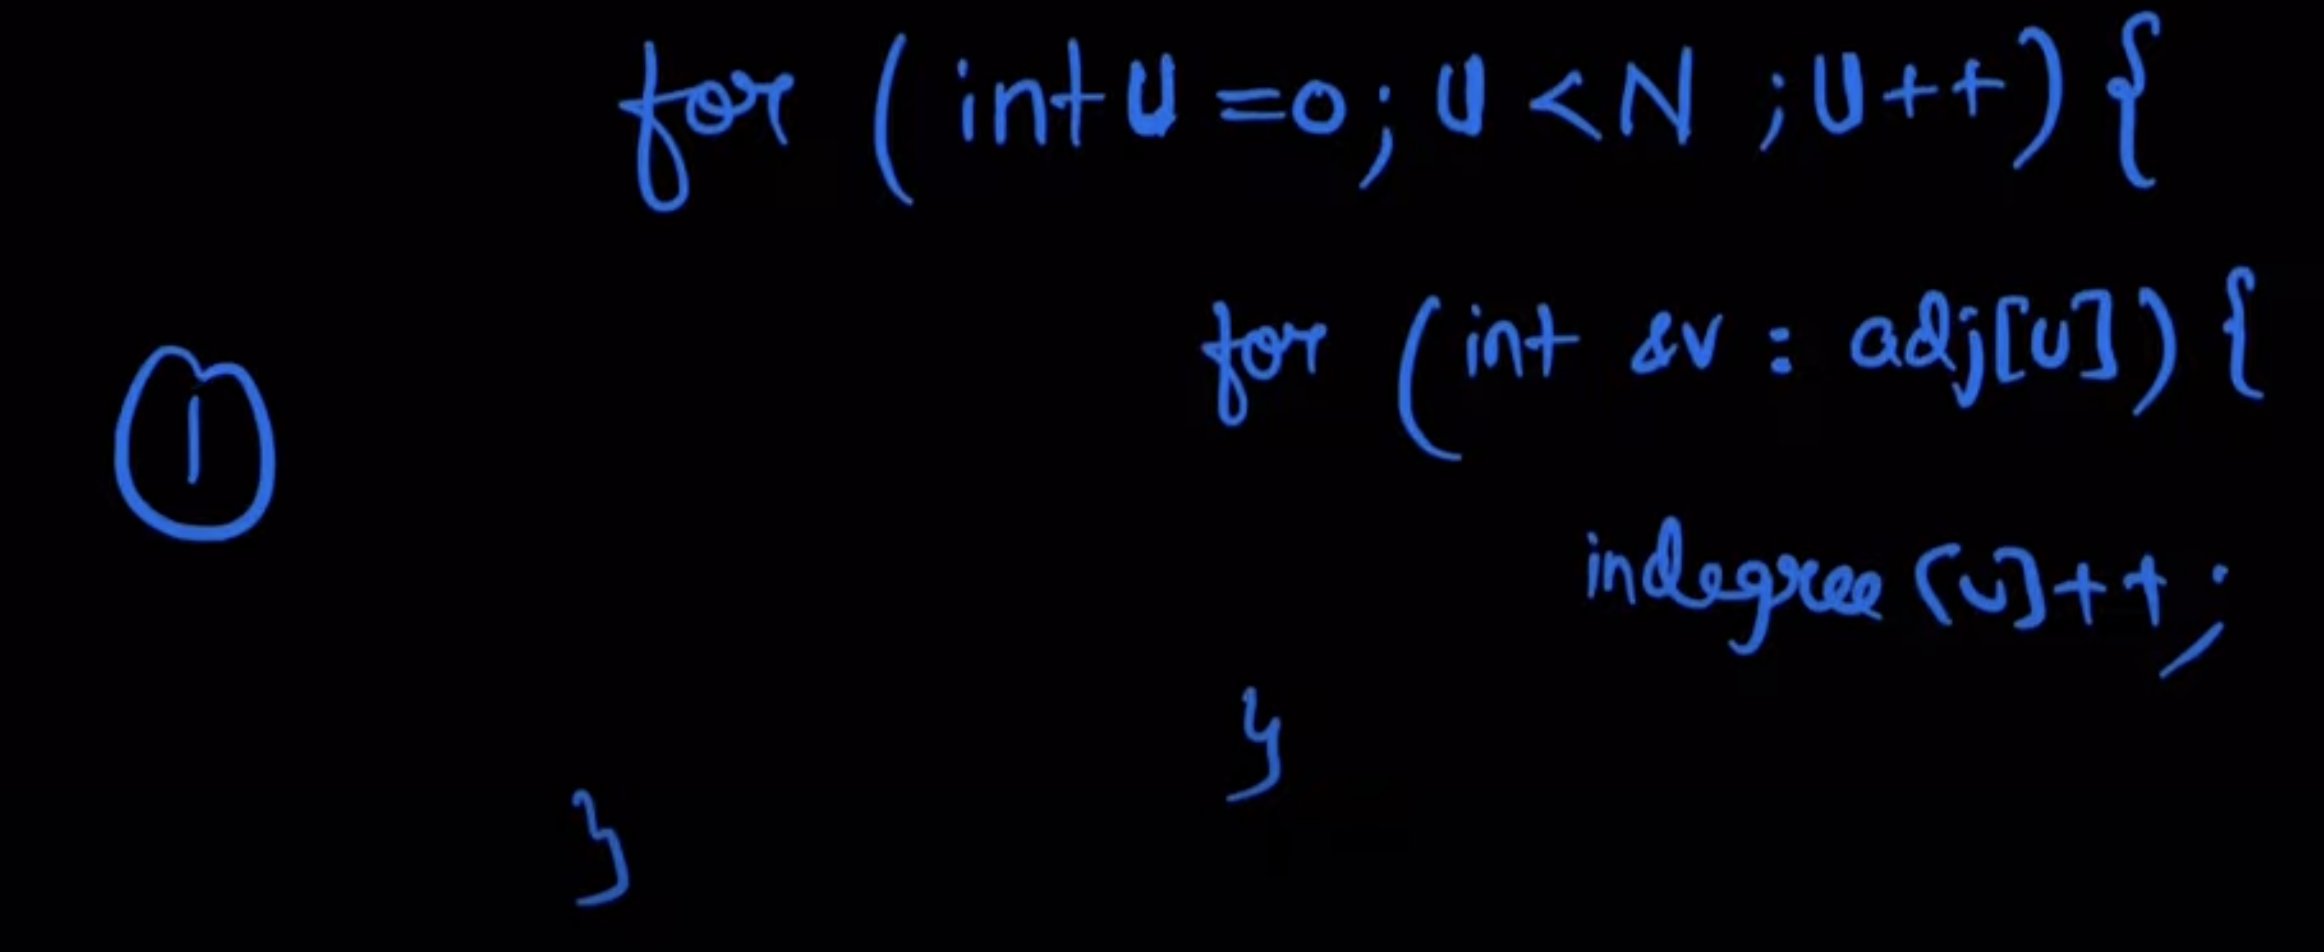 for (int u =0; u < N ; u++) {
for (int &v : adj[u]) {
①
indegree [v]++;
}
}